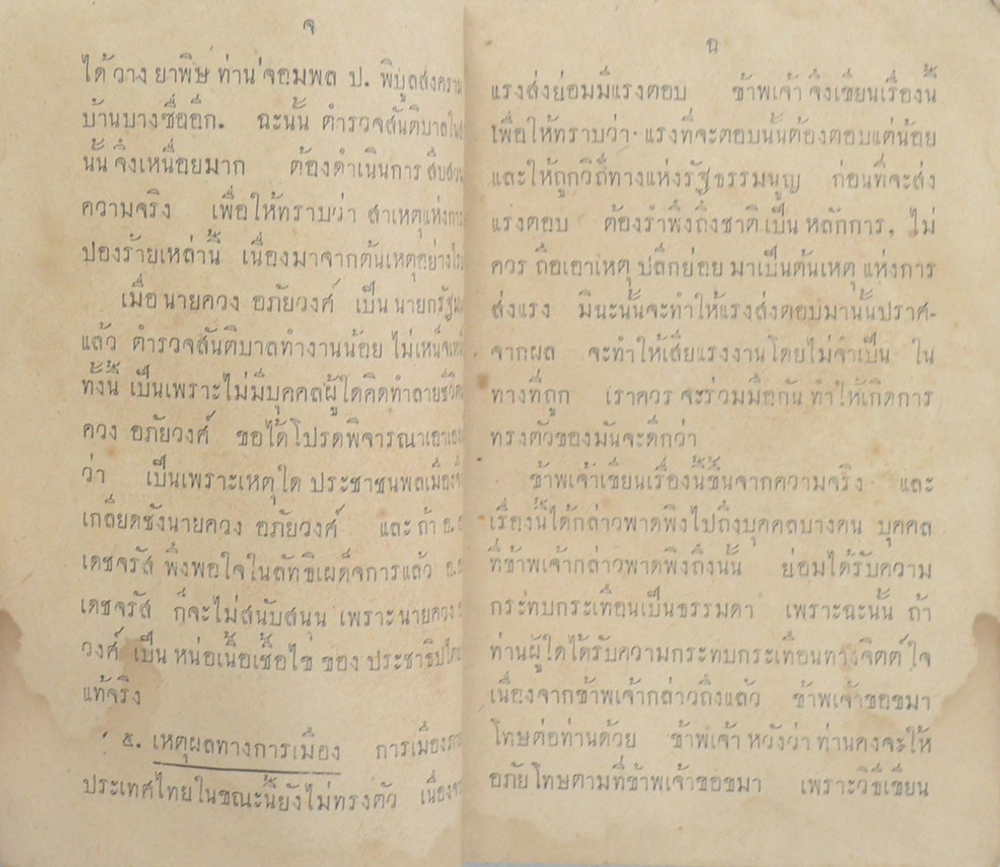 จ
ได้วาง ยาพิษ ท่าน จอมพล ป. พิบูลสงคราม
บ้านบางซื่ออีก. ฉะนั้น ตำรวจสันติบาลใน
นั้น จึงเหนื่อยมาก ต้องดำเนินการ สืบสวน
ความจริง เพื่อให้ทราบว่า สาเหตุแห่งการ
ปองร้ายเหล่านี้ เนื่องมาจากต้นเหตุอย่าง
เมื่อ นายควง อภัยวงศ์ เป็น นายกรัฐ
แล้ว ตำรวจสันติบาลทำงานน้อย ไม่เหน็จ
ทั้งนี้ เป็นเพราะไม่มีบุคคลผู้ใดคิดทำลายชีวิต
ควง อภัยวงศ์ ขอได้โปรดพิจารณาเอาเอง
ว่า เป็นเพราะเหตุใด ประชาชนพลเมือง
เกลียดชังนายควง อภัยวงศ์ และ ถ้า อ.
เดชจรัส พึงพอใจในลัทธิเผด็จการแล้ว อ.
เดชจรัส ก็จะไม่สนับสนุน เพราะ นายควง
วงศ์ เป็น หน่อเนื้อเชื้อไข ของ ประชาธิปไตย
แท้จริง
๕. เหตุผลทางการเมือง การเมือง
ประเทศไทยในขณะนี้ยังไม่ทรงตัว เนื่อง
ฉ
แรงส่งย่อมมีแรงตอบ ข้าพเจ้า จึงเขียนเรื่องนี้
เพื่อให้ทราบว่า แรงที่จะตอบนั้นต้องตอบแต่น้อย
และให้ถูกวิถีทางแห่งรัฐธรรมนูญ ก่อนที่จะส่ง
แรงตอบ ต้องรำพึงถึงชาติ เป็น หลักการ, ไม่
ควร ถือเอาเหตุ ปลีกย่อย มาเป็นต้นเหตุ แห่งการ
ส่งแรง มิฉะนั้นจะทำให้แรงส่งตอบมานั้นปราศ-
จากผล จะทำให้เสียแรงงานโดยไม่จำเป็น ใน
ทางที่ถูก เราควร จะร่วมมือกัน ทำให้เกิดการ
ทรงตัวของมันจะดีกว่า
ข้าพเจ้าเขียนเรื่องนี้ขึ้นจากความจริง และ
เรื่องนี้ได้กล่าวพาดพิงไปถึงบุคคลบางคน บุคคล
ที่ข้าพเจ้ากล่าวพาดพิงถึงนั้น ย่อมได้รับความ
กระทบกระเทือนเป็นธรรมดา เพราะฉะนั้น ถ้า
ท่านผู้ใดได้รับความกระทบกระเทือนทางจิตต์ ใจ
เนื่องจากข้าพเจ้ากล่าวถึงแล้ว ข้าพเจ้าขอขมา
โทษต่อท่านด้วย ข้าพเจ้า หวังว่า ท่านคงจะให้
อภัยโทษตามที่ข้าพเจ้าขอขมา เพราะวิธีเขียน